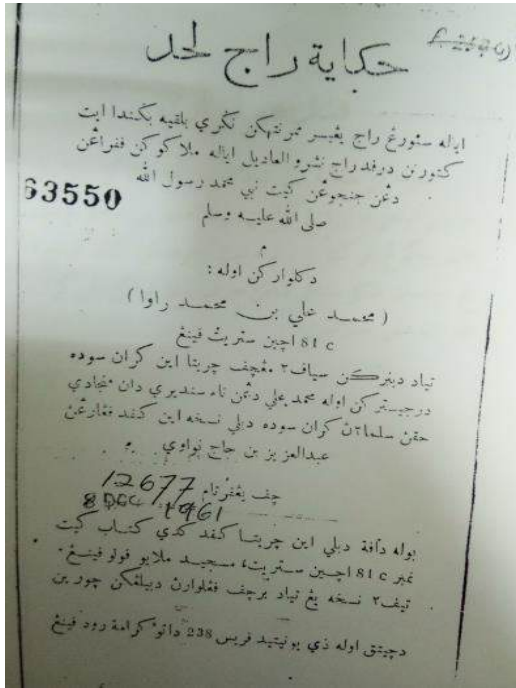 حكاية راج لحد
اياله سئورڠ راج يڠبسر ممرنتهكن نڬري بلقيه بڬندا ايت
كتورنن درفد راج نشرو العاديل اياله ملاكوكن ففراڠن
دڠن جنجوڠن كيت نبي محمد رسول الله
63550
صلى الله عليه وسلم
دكلواركن اوله :
( محمد علي بن محمد راوا )
81 c اچين ستريت فينڠ
تياد دبنركن سياف٢ مڠچف چريتا اين كران سوده
درجيستركن اوله محمد علي دڠن ناء سنديري دان منجادي
حقن سلمان كران سوده دبلي نسخه اين كفد فڠارڠن
عبدالعزيز بن حاج نواوي
چف يڠفرتام 12677
8 DEC 1961
بوله دافة دبلي اين چريتا كفد كدي كتاب كيت
نمبر 81 c اچين ستريت، مسجيد ملايو فولو فينڠ.
تيف٢ نسخه يڠ تياد برچف فڠلوارن دبيلڠكن چورين
دچيتق اوله ذي يونيتيد فريس 238 داتوء كرامة رود فينڠ